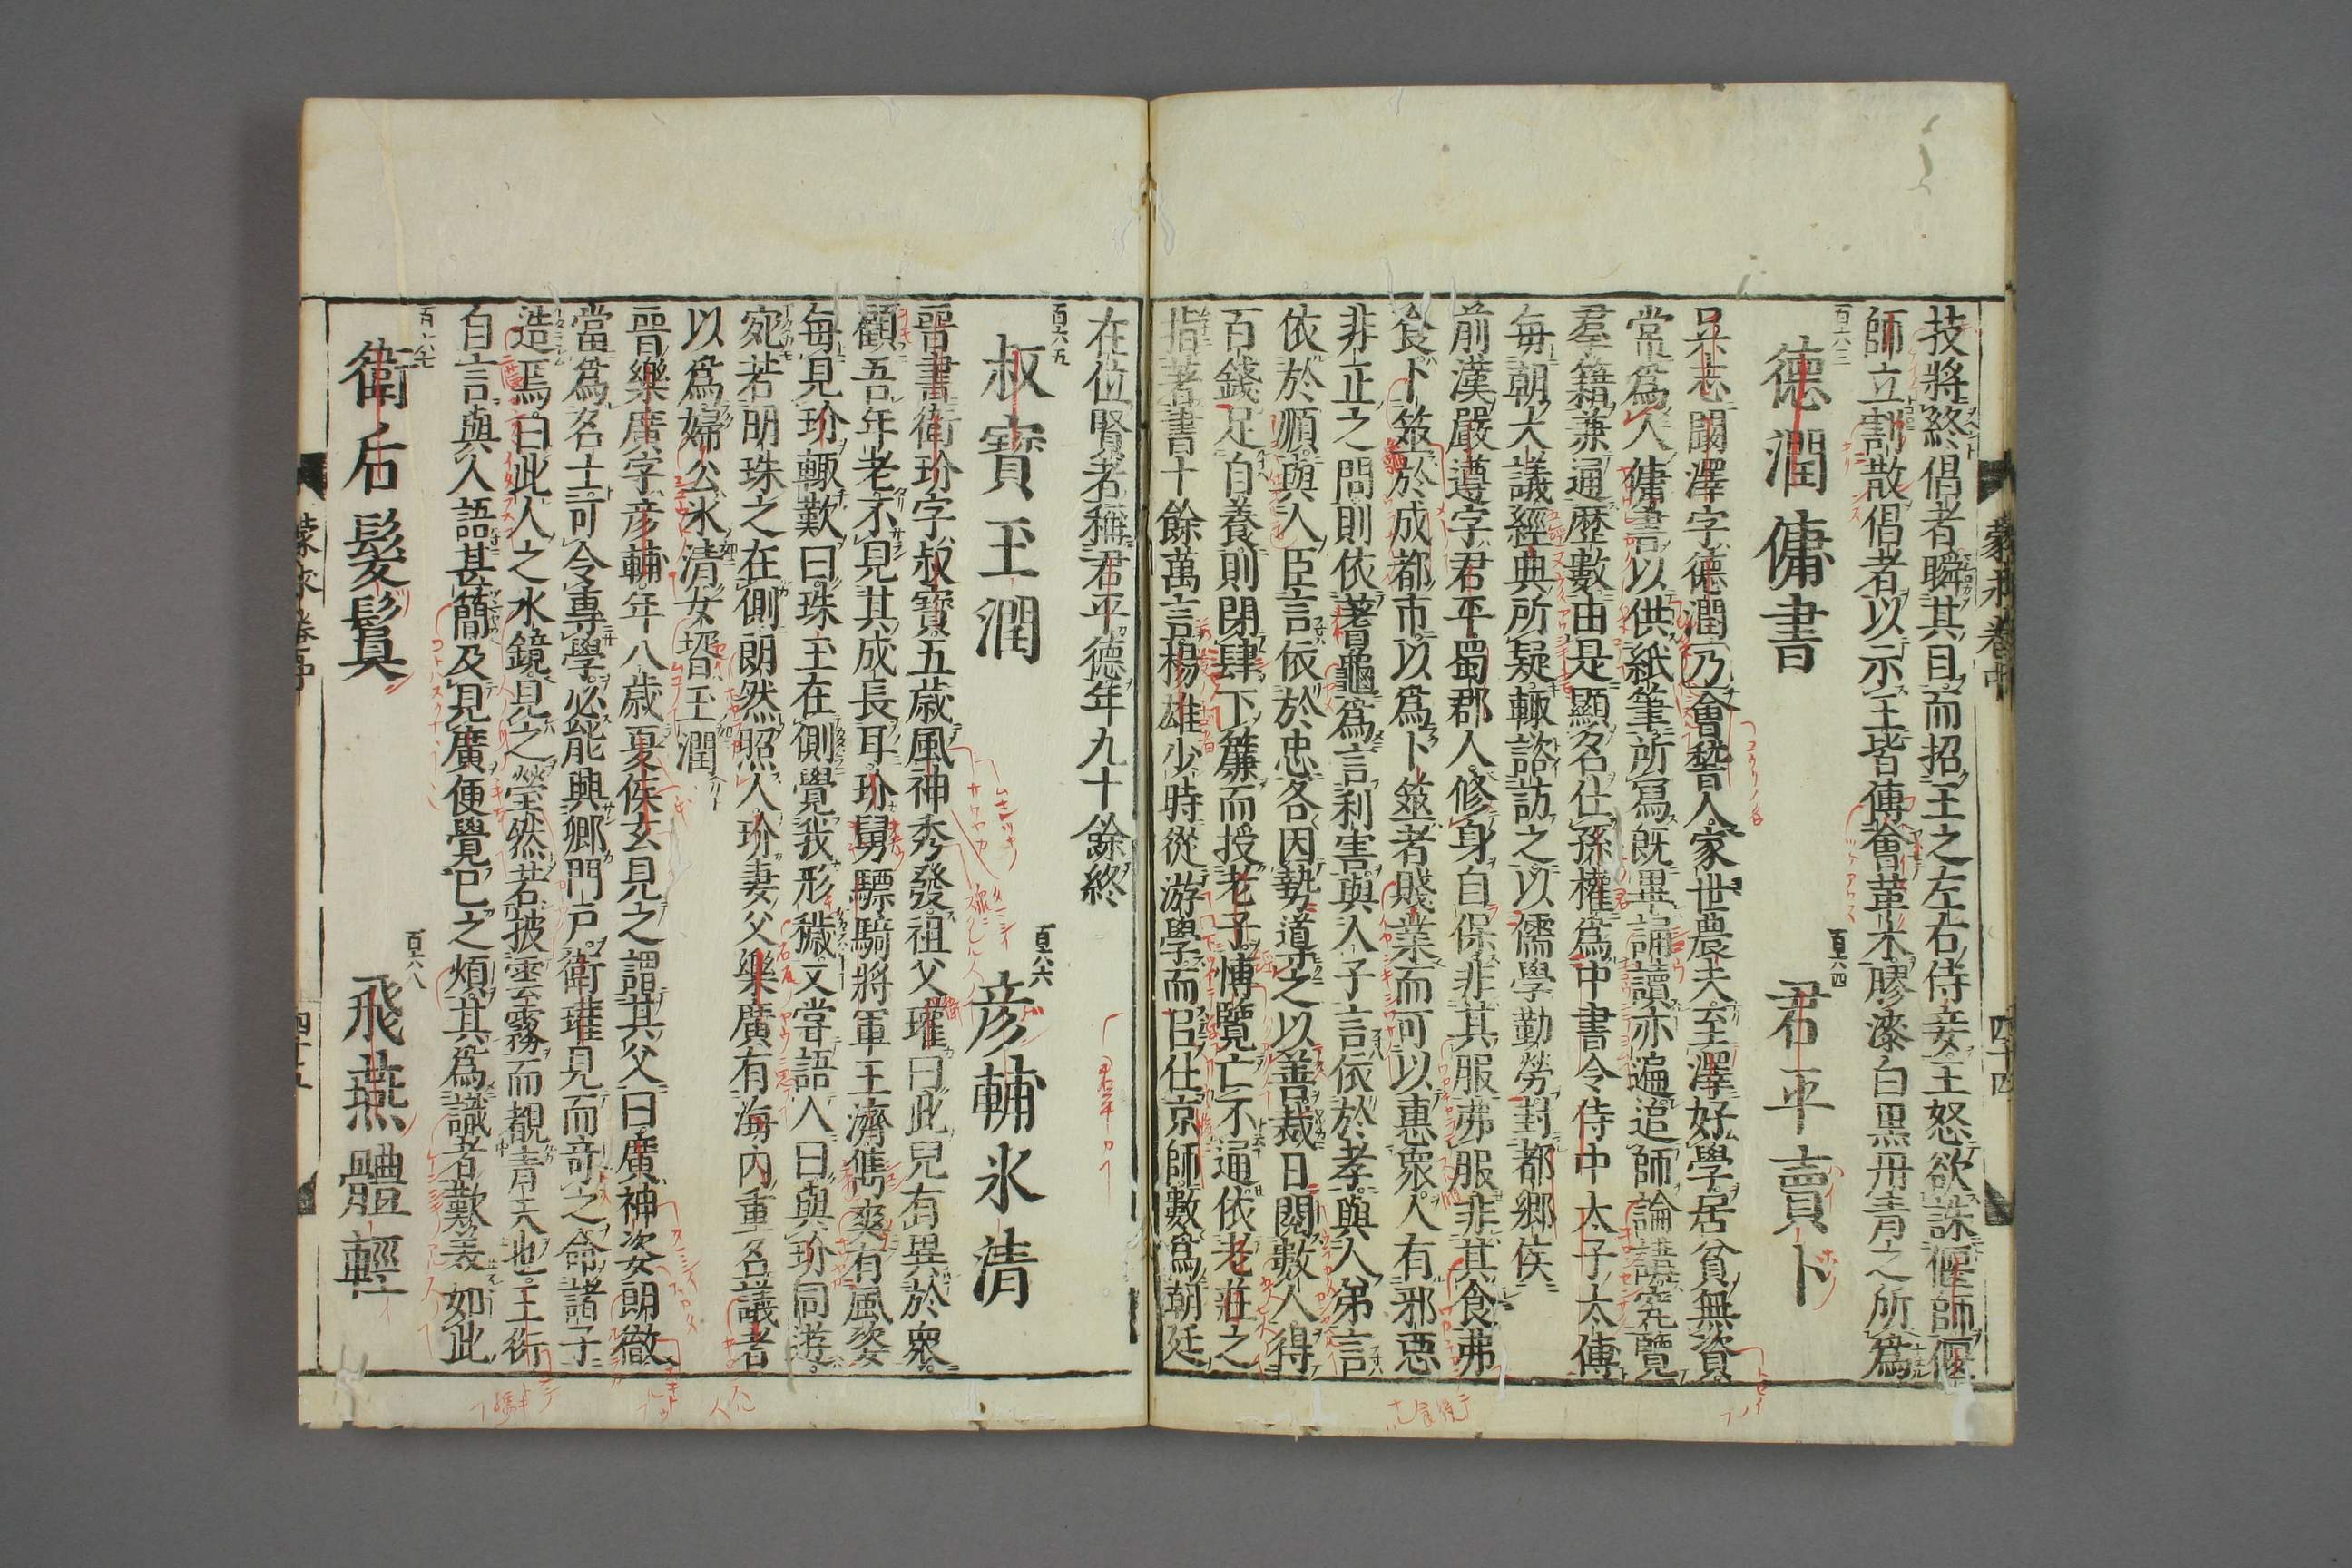 技將終倡者瞬其目而招王之左右侍妾王怒欲誅偃師偃
師立剖散倡者以示王皆傅會革木膠漆白黒丹青之所爲
百六三
德潤傭書
百六四
君平賣卜
吴志闞澤字德潤乃會稽人家世農夫至澤好學居貧無資
常爲人傭書以供紙筆所寫既畢誦讀亦遍追師論講究覽
羣籍兼通歴數由是顯名仕孫權爲中書令侍中太子太傅
毎朝大議經典所疑輙諮訪之以儒學勤勞封都郷侯
前漢嚴遵字君平蜀郡人修身自保非其服弗服非其食弗
食卜筮於成都市以爲卜筮者賤業而可以惠衆人有邪惡
非正之問則依蓍龜爲言利害與人子言依於孝與人弟言
依於順與人臣言依於忠各因勢導之以善裁日閲數人得
百錢足自養則閉肆下簾而授老子博覽亡不通依老莊之
指著書十餘萬言楊雄少時從游學而㠯仕京師數爲朝廷
蒙求卷中
四十四
在位賢者稱君平德年九十餘終
百六五
叔寶玉潤
百六六
彦輔氷清
晉書衛玠字叔寶五歳風神秀發祖父瓘曰此兒有異於衆
顧吾年老不見其成長耳玠舅驃騎將軍王濟儁爽有風姿
毎見玠輙歎曰珠玉在側覺我形穢又嘗語人曰與玠同遊
宛若明珠之在側朗然照人玠妻父樂廣有海内重名議者
以爲婦公氷清女壻玉潤
晉樂廣字彦輔年八歳夏侯玄見之謂其父曰廣神姿朗徹
當爲名士可令專學必能興郷門戸衛瓘見而奇之命諸子
造焉曰此人之水鏡見之瑩然若披雲霧而覩青天也王衍
自言與人語甚簡及見廣便覺己之煩其爲識者歎美如此
百六七
衛后髮鬒
百六八
飛燕體輕
蒙求卷中
四十五